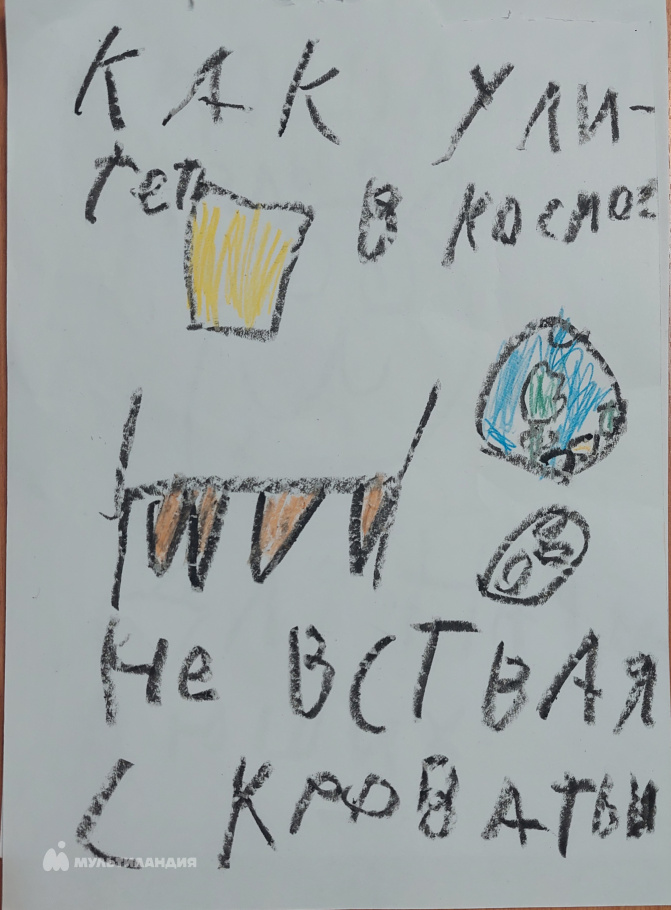 КАК УЛИ-
теть В космос
Не ВСТВАЯ
С КРОВАТЬИ
МУЛЬТИЛАНДИЯ